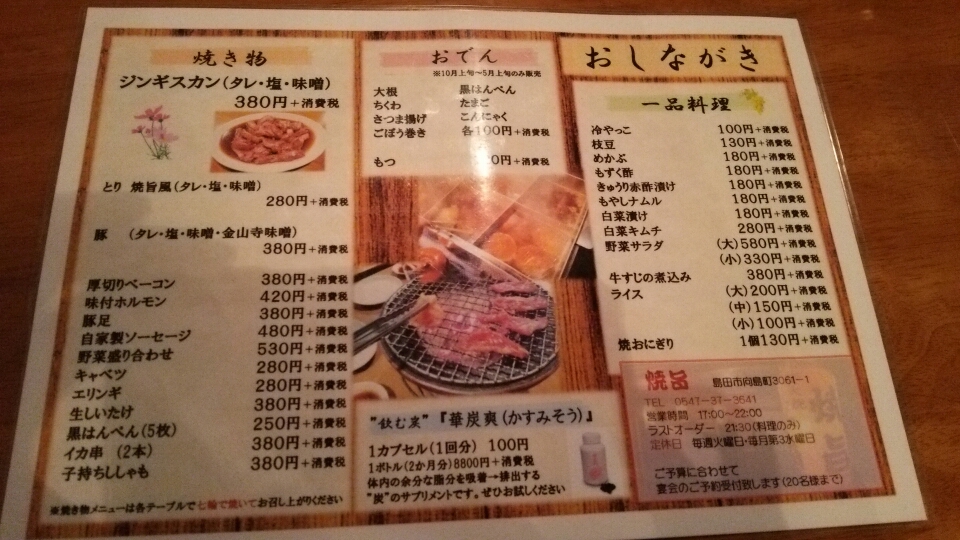 焼き物
ジンギスカン(タレ・塩・味噌)
380円+消費税
とり 焼旨風(タレ・塩・味噌)
280円+消費税
豚 (タレ・塩・味噌・金山寺味噌)
380円+消費税
厚切りベーコン 380円+消費税
味付ホルモン 420円+消費税
豚足 380円+消費税
自家製ソーセージ 480円+消費税
野菜盛り合わせ 530円+消費税
キャベツ 280円+消費税
エリンギ 280円+消費税
生しいたけ 380円+消費税
黒はんぺん(5枚) 250円+消費税
イカ串 (2本) 380円+消費税
子持ちししゃも 380円+消費税
※焼き物メニューは各テーブルで七輪で焼いてお召し上がりください
おでん
※10月上旬〜5月上旬のみ販売
大根 黒はんぺん
ちくわ たまご
さつま揚げ こんにゃく
ごぼう巻き 各100円+消費税
もつ 0円+消費税
"飲む炭"『華炭爽(かすみそう)』
1カプセル(1回分) 100円
1ボトル(2か月分)8800円+消費税
体内の余分な脂分を吸着→排出する
"炭"のサプリメントです。ぜひお試しください
おしながき
一品料理
冷やっこ 100円+消費税
枝豆 130円+消費税
めかぶ 180円+消費税
もずく酢 180円+消費税
きゅうり赤酢漬け 180円+消費税
もやしナムル 180円+消費税
白菜漬け 180円+消費税
白菜キムチ 280円+消費税
野菜サラダ (大)580円+消費税
(小)330円+消費税
牛すじの煮込み 380円+消費税
ライス (大)200円+消費税
(中)150円+消費税
(小)100円+消費税
焼おにぎり 1個130円+消費税
焼旨 島田市向島町3061-1
TEL 0547-37-3641
営業時間 17:00〜22:00
ラストオーダー 21:30(料理のみ)
定休日 毎週火曜日・毎月第3水曜日
ご予算に合わせて
宴会のご予約受付致します(20名様まで)